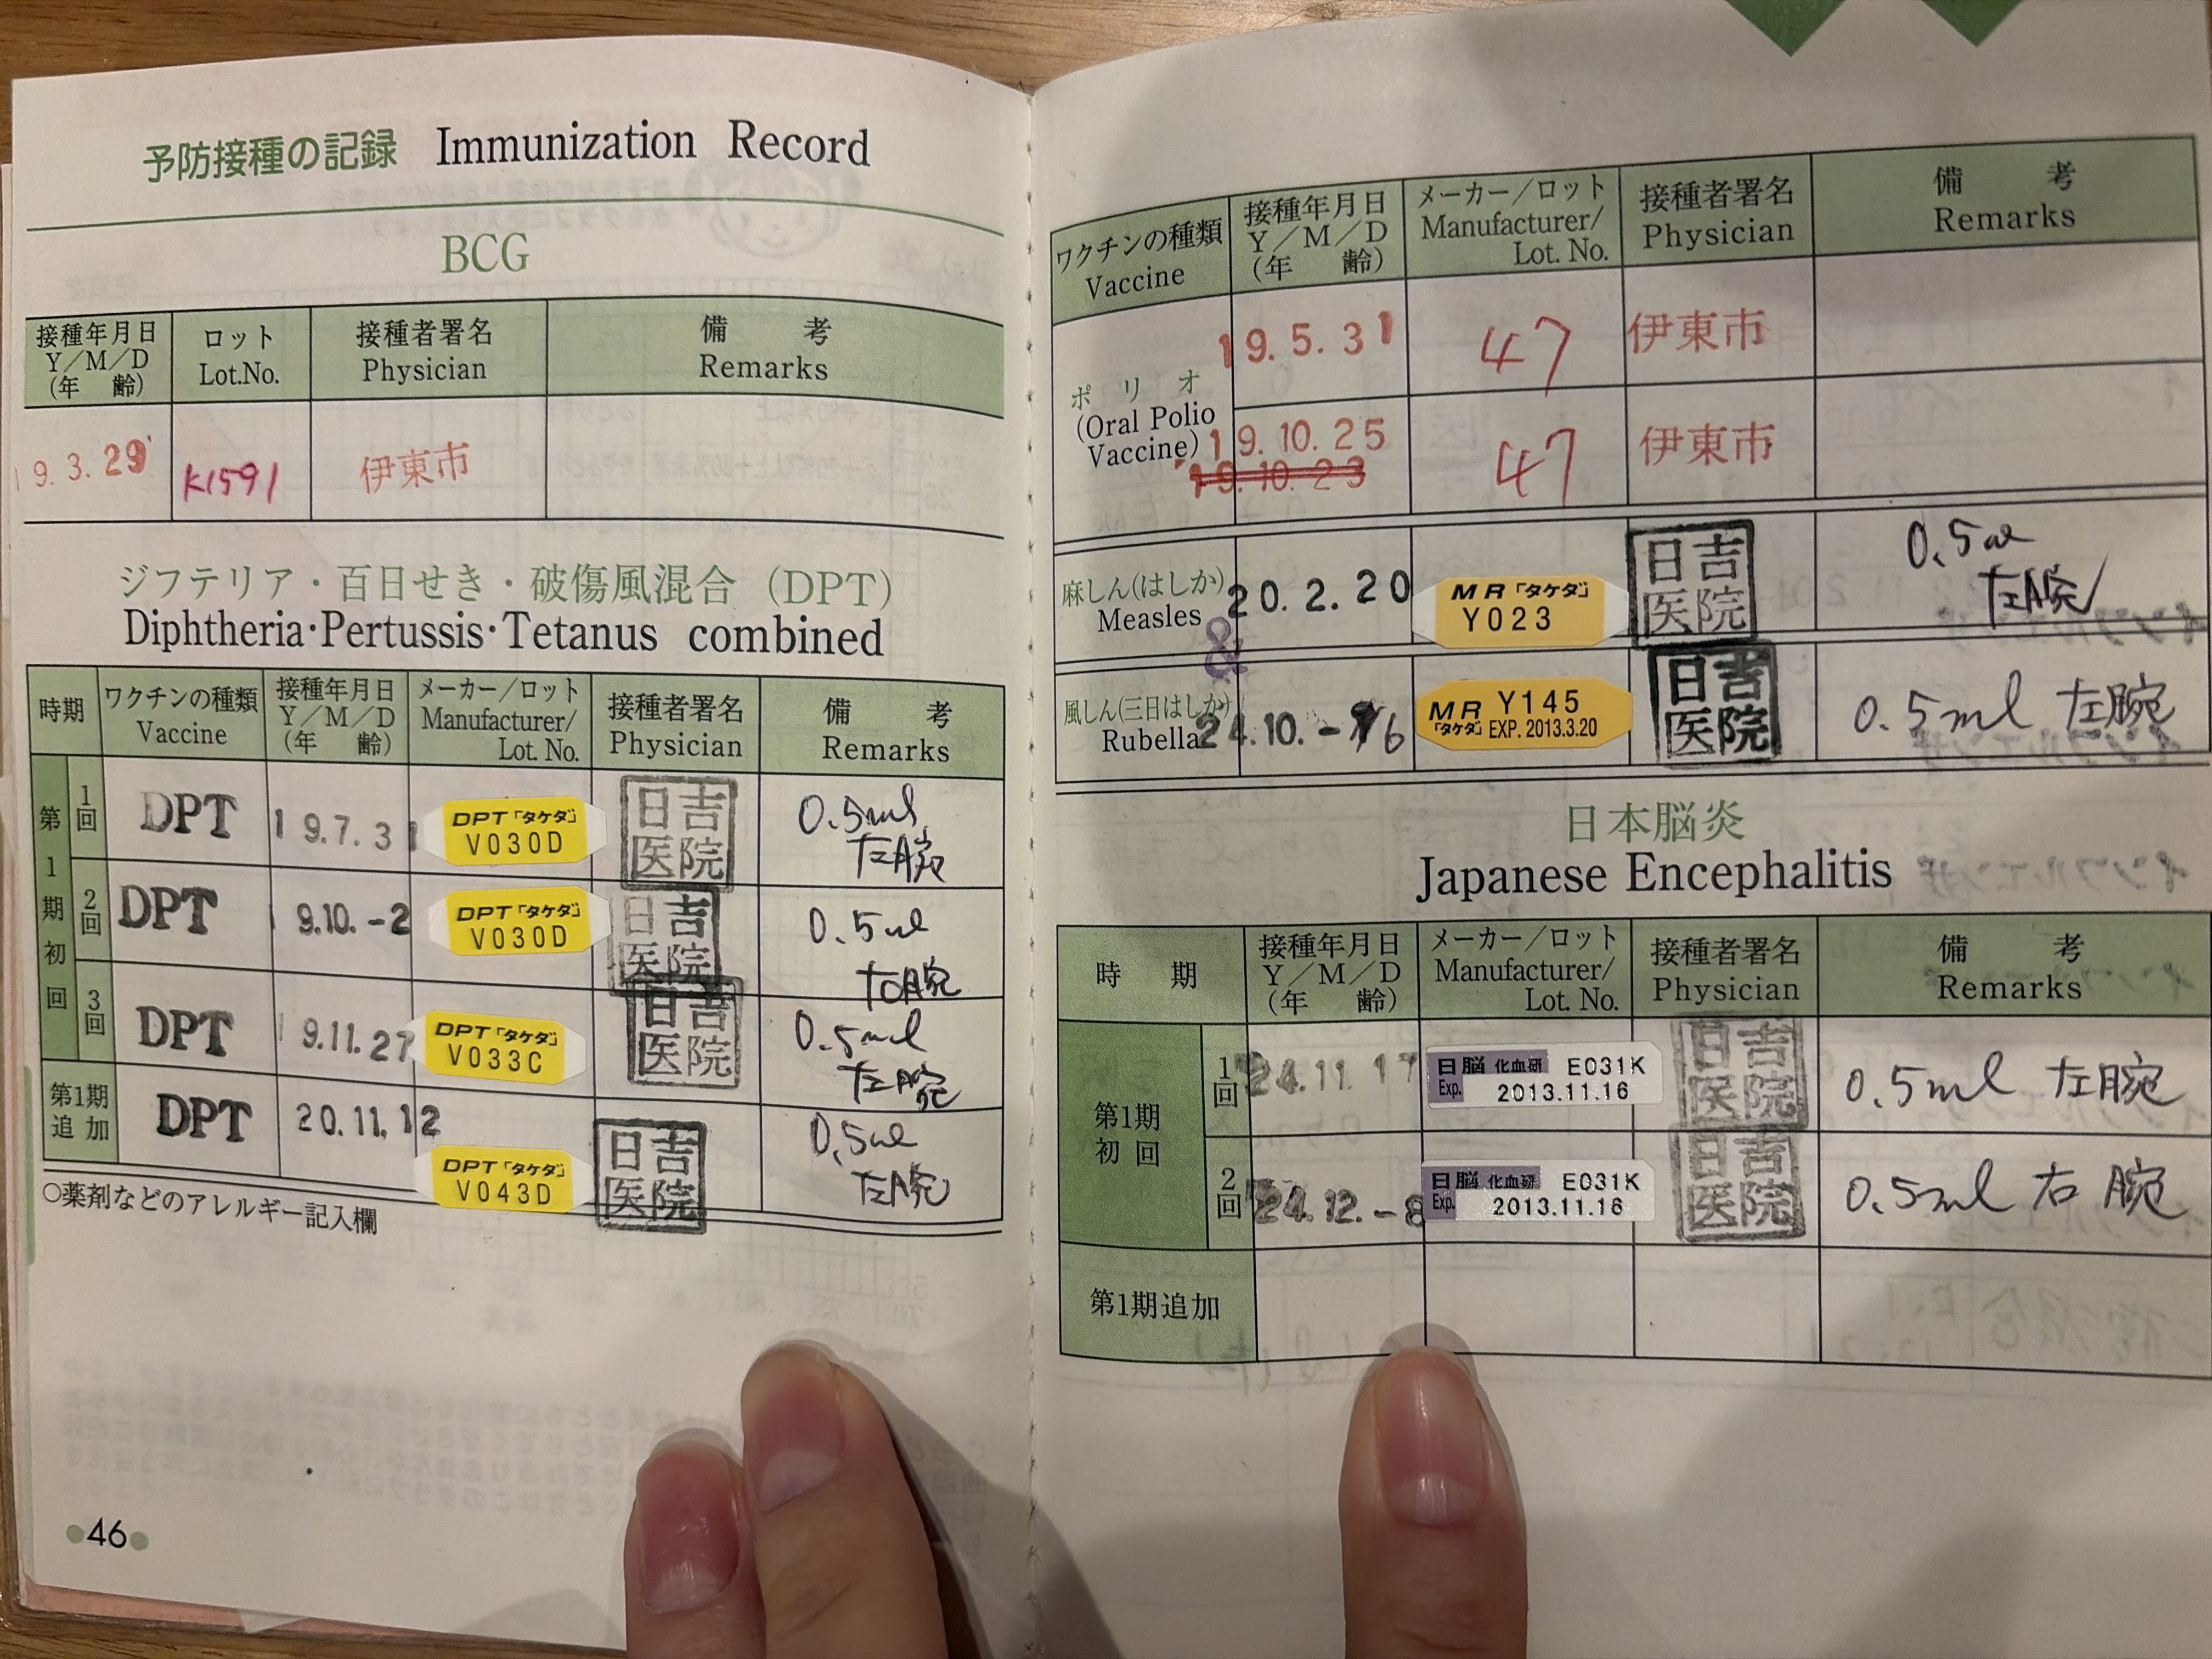 予防接種の記録 Immunization Record
BCG
接種年月日 Y／M／D （年 齢）
ロット Lot.No.
接種者署名 Physician
備 考 Remarks
19.3.29 K1591 伊東市
ジフテリア・百日せき・破傷風混合（DPT）
Diphtheria・Pertussis・Tetanus combined
時期
ワクチンの種類 Vaccine
接種年月日 Y／M／D （年 齢）
メーカー／ロット Manufacturer/ Lot. No.
接種者署名 Physician
備 考 Remarks
第1期初回
1回 DPT 19.7.31 DPT「タケダ」 V030D 日吉医院 0.5ml 左腕
2回 DPT 19.10.-2 DPT「タケダ」 V030D 日吉医院 0.5ml 右腕
3回 DPT 19.11.27 DPT「タケダ」 V033C 日吉医院 0.5ml 左腕
第1期追加 DPT 20.11.12 DPT「タケダ」 V043D 日吉医院 0.5ml 左腕
○薬剤などのアレルギー記入欄
46
ワクチンの種類 Vaccine
接種年月日 Y／M／D （年 齢）
メーカー／ロット Manufacturer/ Lot. No.
接種者署名 Physician
備 考 Remarks
ポリオ (Oral Polio Vaccine)
19.5.31 47 伊東市
19.10.25 47 伊東市
19.10.23
麻しん(はしか) Measles 20.2.20 MR「タケダ」 Y023 日吉医院 0.5ml 左腕
&
風しん(三日はしか) Rubella 24.10.- 6 MR「タケダ」 Y145 EXP. 2013.3.20 日吉医院 0.5ml 左腕
日本脳炎
Japanese Encephalitis
時 期
接種年月日 Y／M／D （年 齢）
メーカー／ロット Manufacturer/ Lot. No.
接種者署名 Physician
備 考 Remarks
第1期初回
1回 24.11.17 日脳 化血研 E031K Exp. 2013.11.16 日吉医院 0.5ml 左腕
2回 24.12.-8 日脳 化血研 E031K Exp. 2013.11.16 日吉医院 0.5ml 右腕
第1期追加